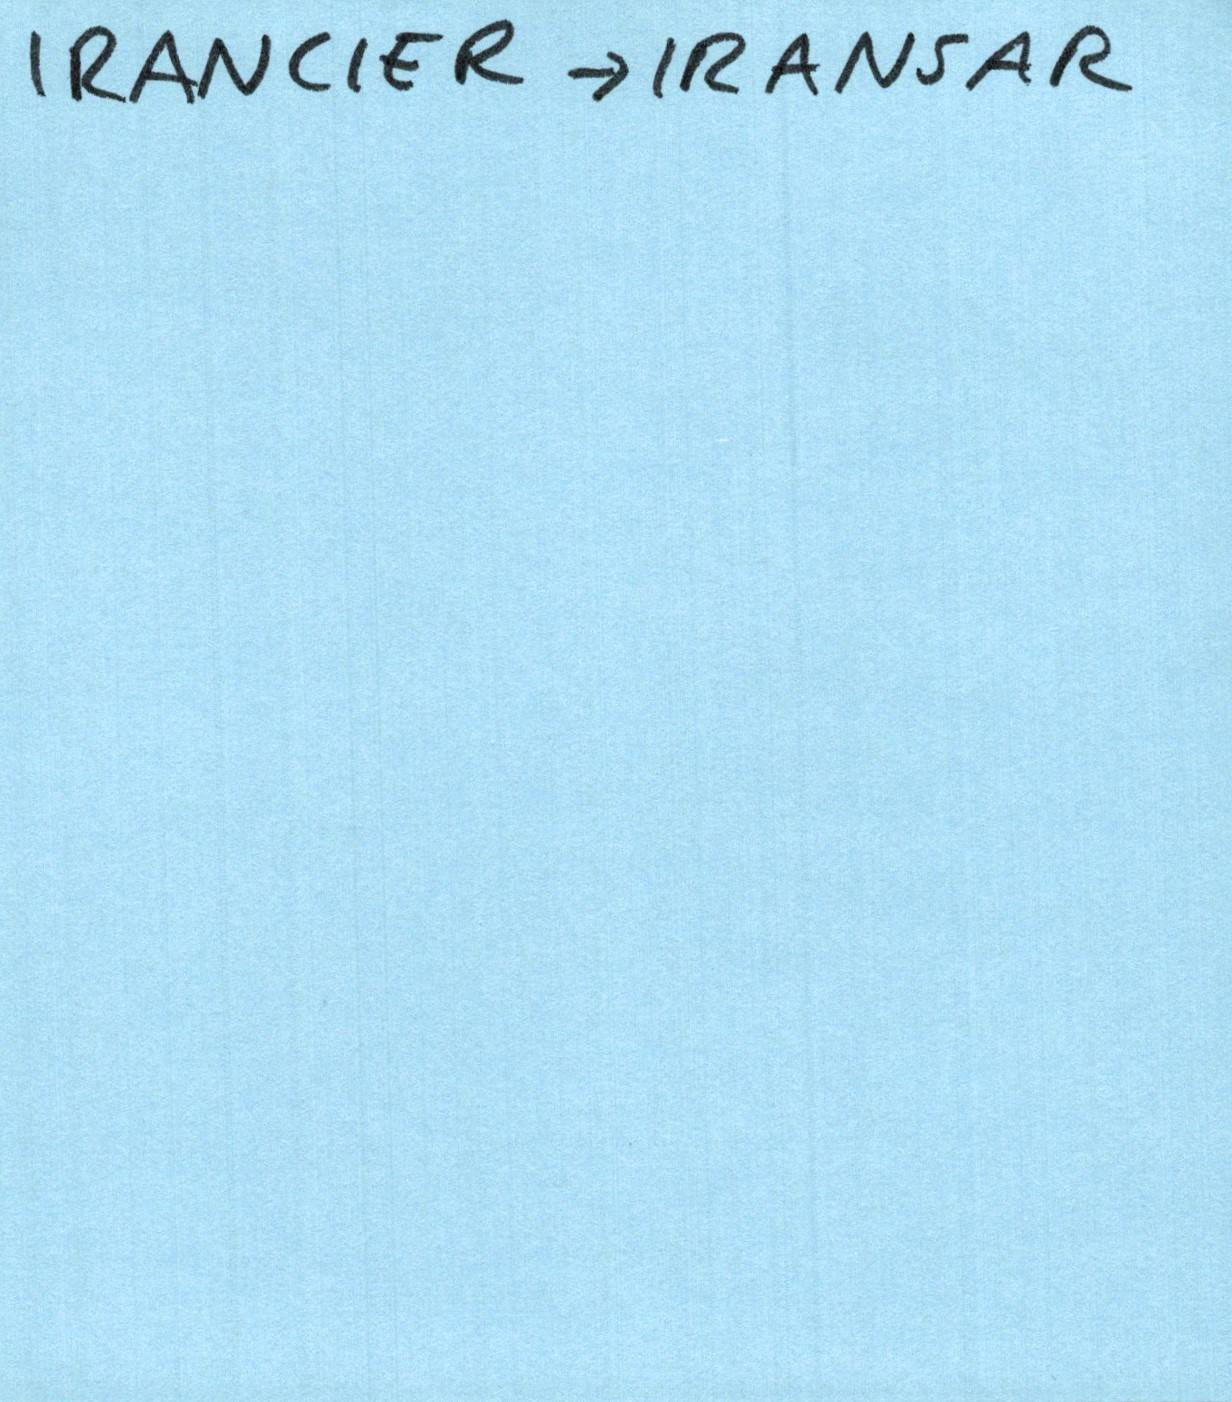 IRANCIER → IRANSAR